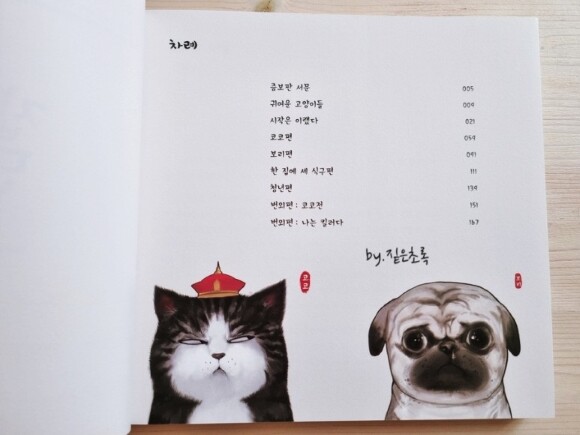 차례
증보판 서문 005
귀여운 고양이들 009
시작은 이랬다 021
코코편 059
보리편 091
한 집에 세 식구편 111
청년편 139
번외편 : 코코전 151
번외편 : 나는 킬러다 167
by. 짙은초록
코코
보리